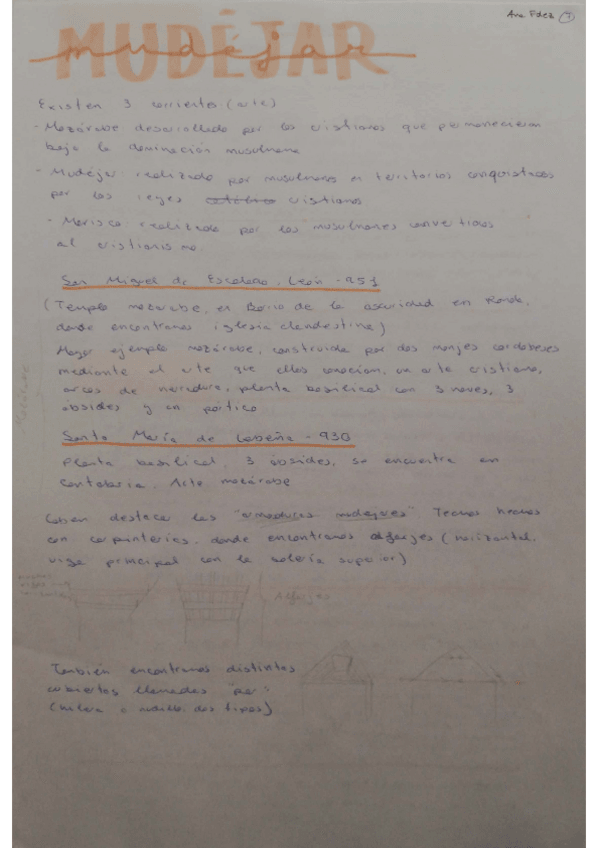 Ana Fdez 1
MUDÉJAR
mudéjar
Existen 3 corrientes (arte)
- Mozárabe desarrollado por los cristianos que permanecieron
bajo la dominación musulmana
- Mudéjar realizado por musulmanes en territorios conquistados
por los reyes cristianos
- Morisco realizado por los musulmanes convertidos
al cristianismo
San Miguel de Escalada, León - 951
(Templo mozárabe, en Barrio de la oscuridad en Ronda,
donde encontramos iglesia clandestina)
Mayor ejemplo mozárabe, construida por dos monjes cordobeses
mediante el arte que ellos conocían, un arte cristiano,
arcos de herradura, planta basilical con 3 naves, 3
ábsides y un pórtico
Santa María de Lebeña - 930
Planta basilical, 3 ábsides, se encuentra en
Cantabria. Arte mozárabe
Caben destacar las "armaduras mudéjares" Techos hechos
con carpinterías, donde encontramos alfarjes (horizontal,
viga principal con la solería superior)
Alfarjes
También encontramos distintas
cubiertas llamadas "par"
(hilera o nudillo, dos tipos)